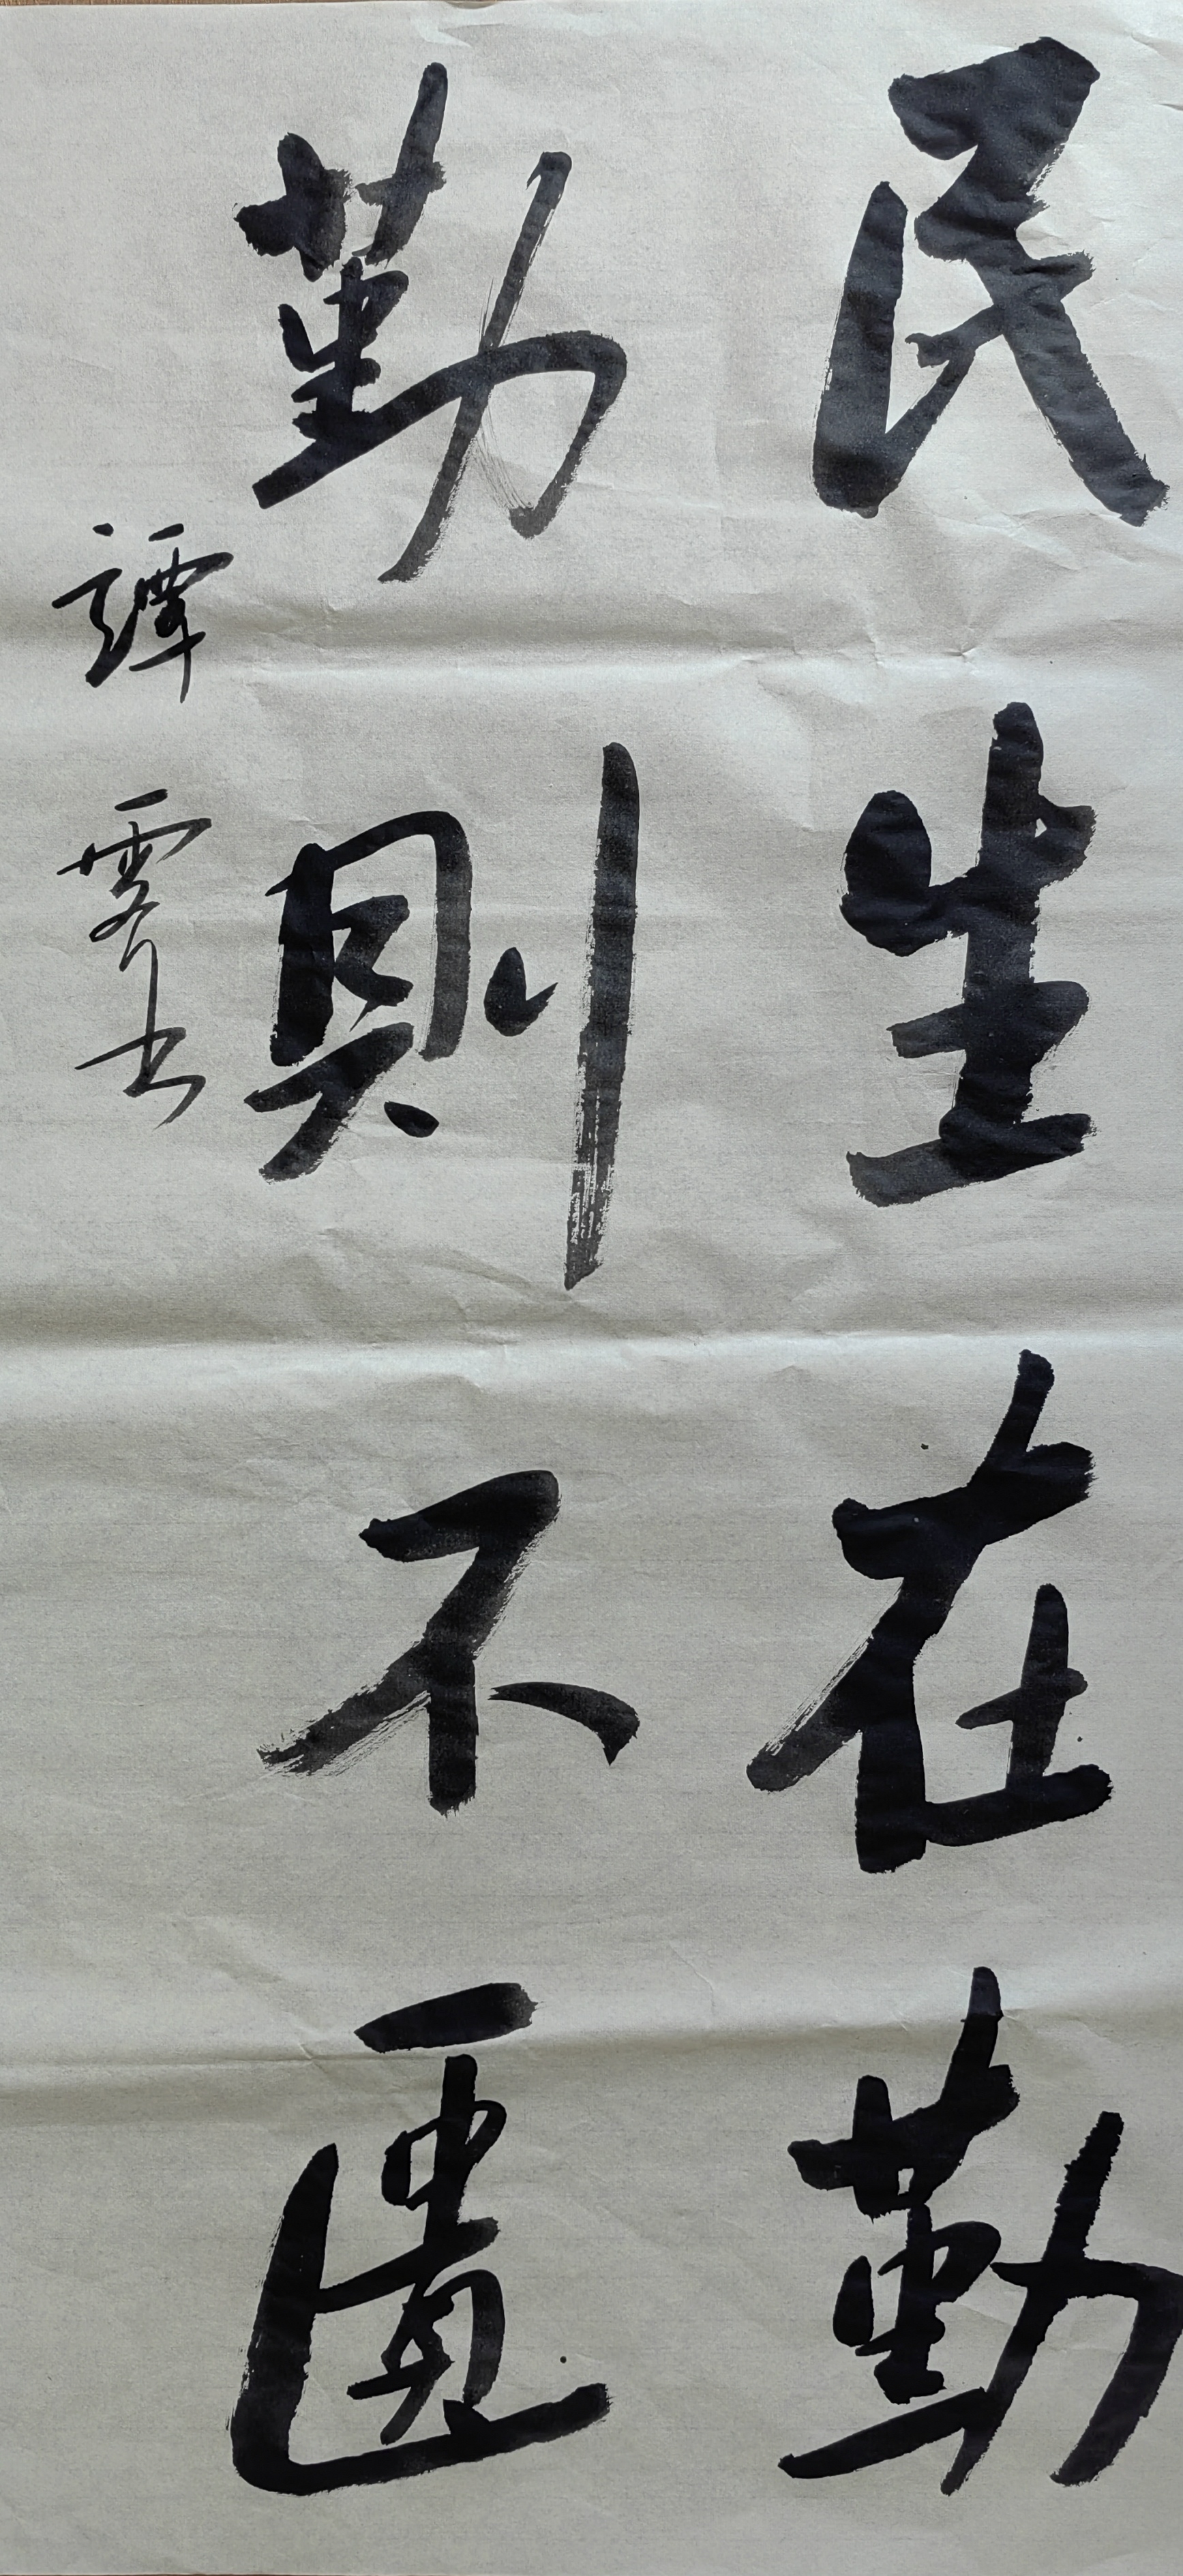 民生在勤
勤則不匱
譚